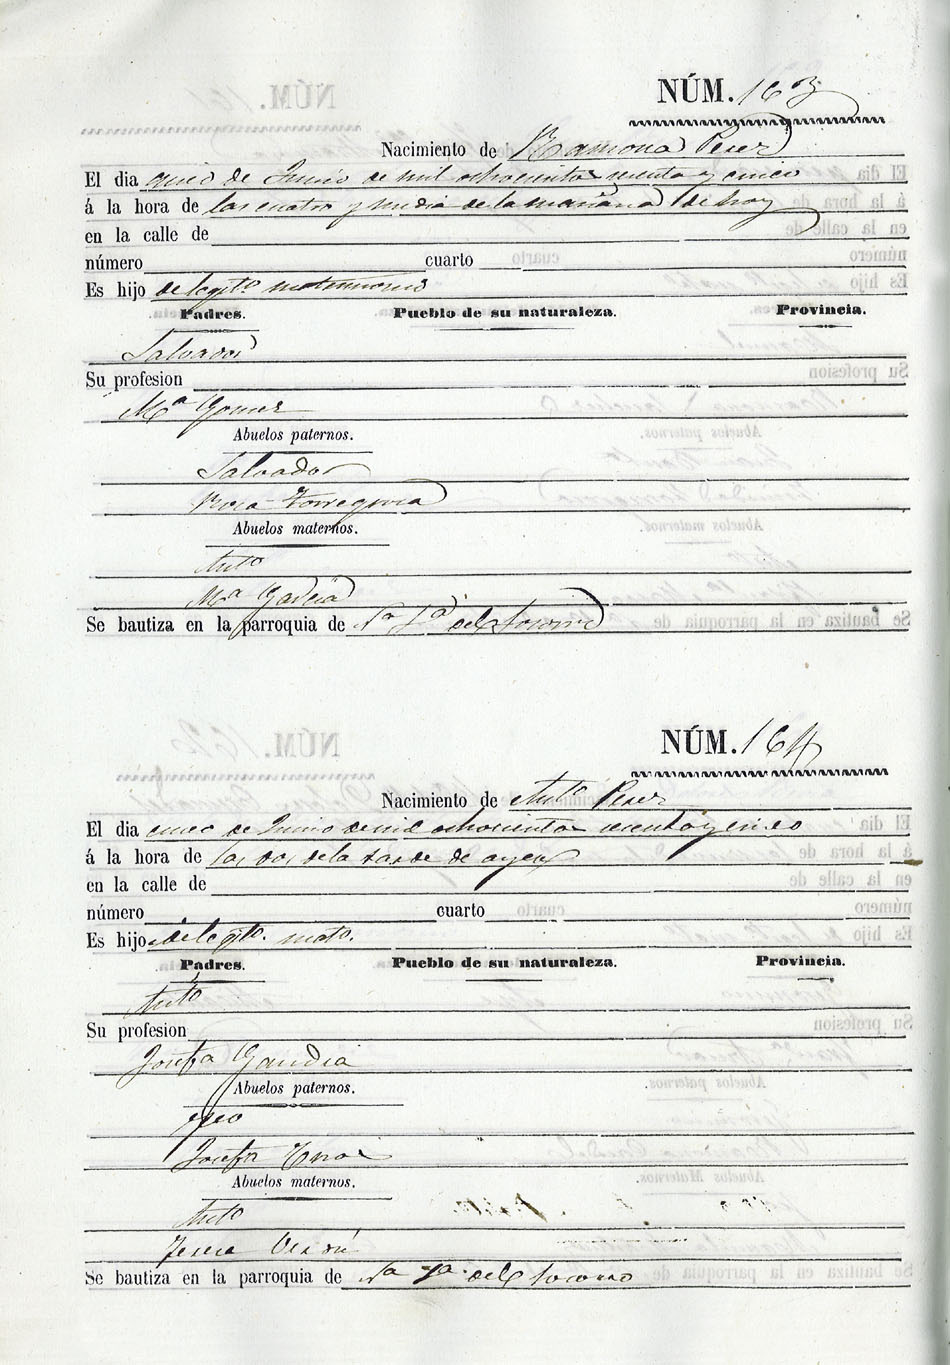 NÚM. 163
Nacimiento de Ramona Perez
El dia cinco de Junio de mil ochocientos sesenta y cinco
á la hora de las cuatro y media de la mañana de hoy
en la calle de
número cuarto
Es hijo de legit.º matrimonio
Padres. Pueblo de su naturaleza. Provincia.
Salvador
Su profesion
M.ª Gomez
Abuelos paternos.
Salvador
Rosa Torregrosa
Abuelos maternos.
Ant.º
M.ª Garcia
Se bautiza en la parroquia de N.ª S.ª del Socorro
NÚM. 164
Nacimiento de Ant.º Perez
El dia cinco de Junio de mil ochocientos sesenta y cinco
á la hora de las dos de la tarde de ayer
en la calle de
número cuarto
Es hijo de legit.º mat.º
Padres. Pueblo de su naturaleza. Provincia.
Ant.º
Su profesion
Josefa Gandia
Abuelos paternos.
Josefa
Abuelos maternos.
Ant.º
Teresa
Se bautiza en la parroquia de N.ª S.ª del Socorro